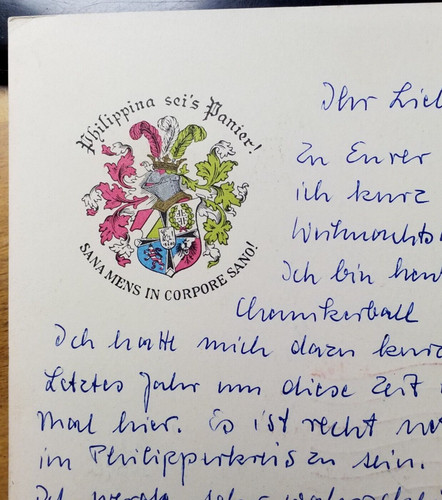 Philippina sei's Panier!
SANA MENS IN CORPORE SANO!
Ihr Lieb
Zu Eurer
ich kurz
Weihnachts
Ich bin heu
Chemikerball
Ich hatte mich dazu kurz
Letztes Jahr um diese Zeit
Mal hier. Es ist recht
im Philipperkreis zu sein.